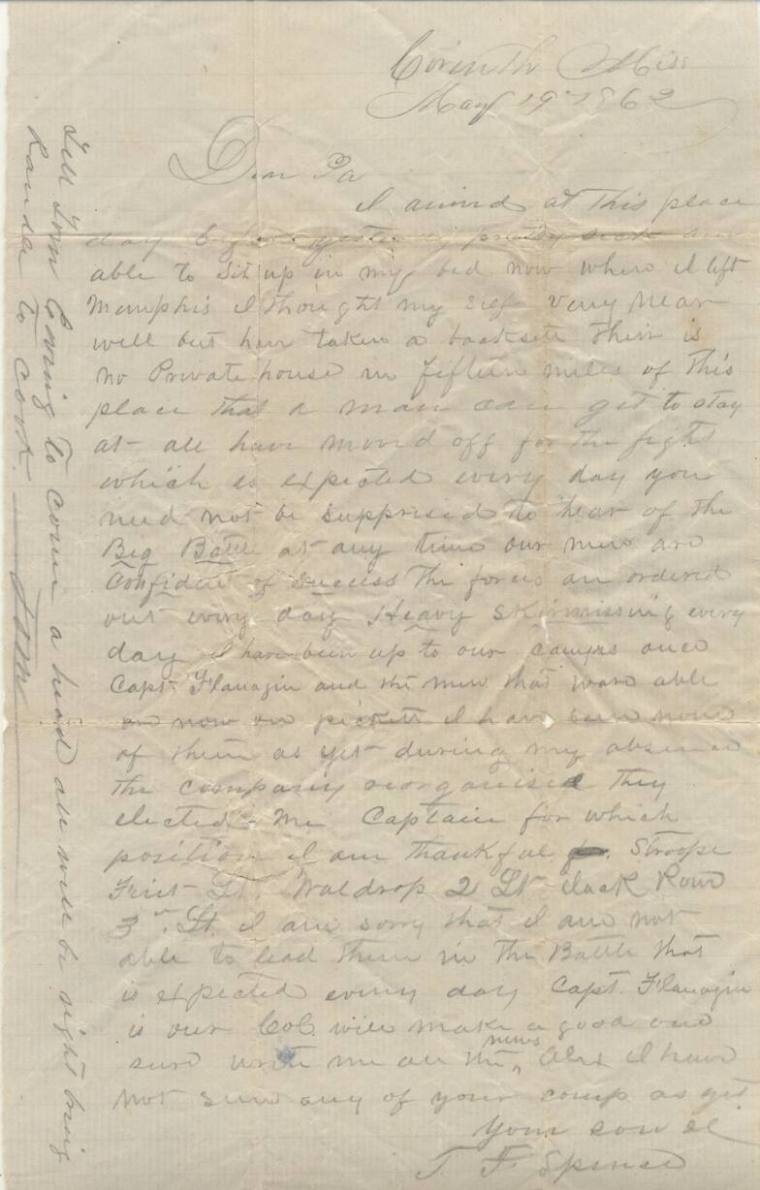 Corinth Miss
May 19th 1862
Dear Pa
I arived at this place
day before yesterday pretty sick am
able to sit up in my bed now when I left
Memphis I thought my self very near
well but have taken a backset their is
no Private house in fifteen miles of this
place that a man can get to stay
at all have moved off for the fight
which is expected every day you
need not be supprised to hear of the
Big Battle at any time our men are
Confident of Success the forces are ordered
out every day Heavy skirmissing every
day I have been up to our camps once
Capt. Flanagin and the men that ware able
are now on pickett I have seen none
of them as yet during my absence
the company reorganised they
elected me Captain for which
position I am thankful Stroope
First Lt. Waldrop 2 Lt Jack Rowe
3rd. Lt. I am sorry that I am not
able to lead them in the Battle that
is expected every day Capt. Flanagin
is our Col. will make a good one
sure write me all the news Alex I have
not seen any of your comp as yet
Your son &c
T F Spence
Tell Tom Coming to come a head all will be right bring
Landa to cook. Tom